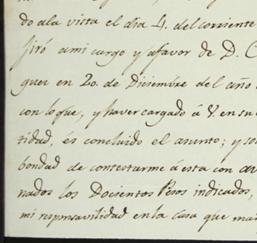 do ala vista el dia 4. del corriente
firó ami cargo y afavor de D. C
guer en 20. de Diciembre del año
con loque, y haver cargado á V. en su
tidad, es concluido el asunto; y so
bondad de contestarme á esta con av
nados los Docientos Pesos indicados,
mi responsavilidad en la Casa que man